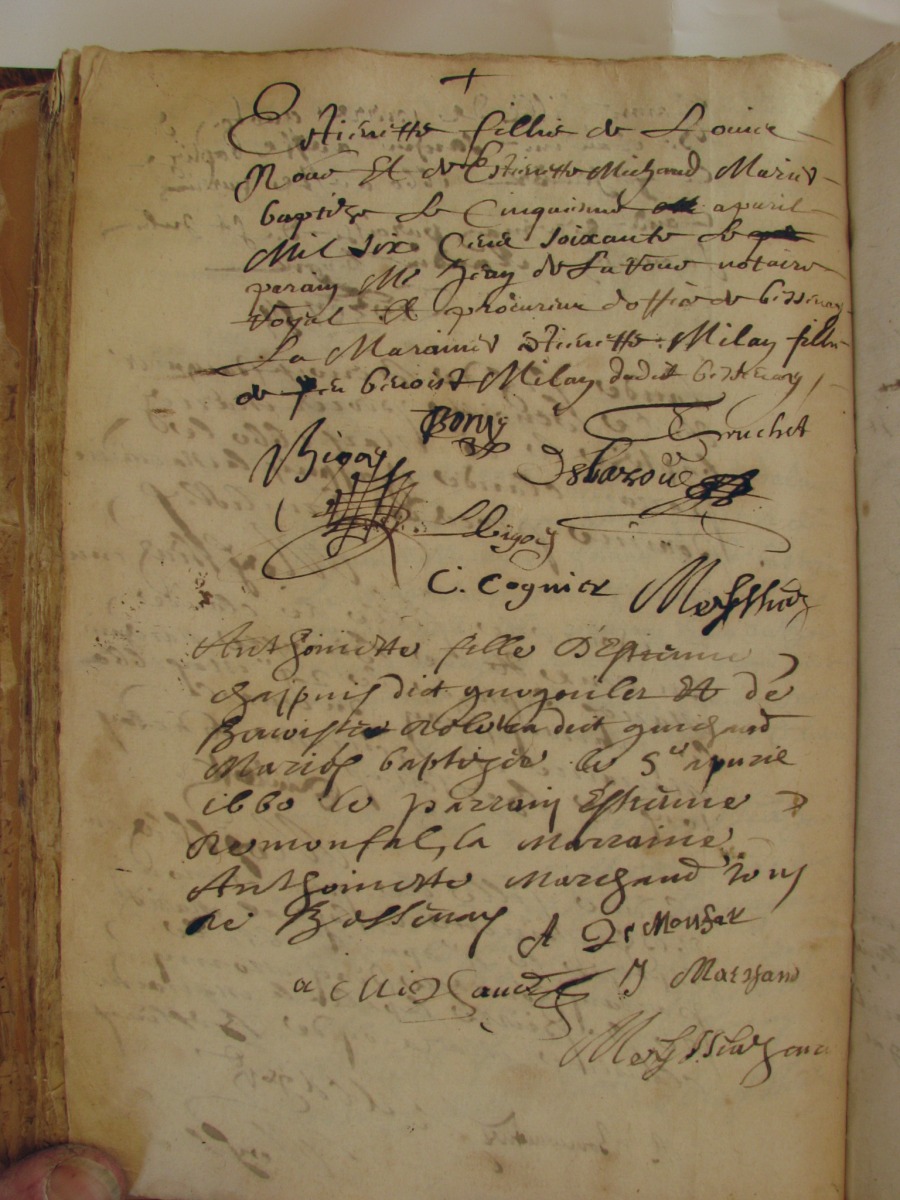 +
Estienette fillie de Louice
Roue Et de Estienette Michaud Mariés
baptize Le Cinquiesme apuril
Mil Six Cens Soixante Le
parain Me Jean de La Roue notaire
Royal Et procureur doffice de bessenay
La Maraine Etienette Milan fillie
de feu benoist Milan dudit bessenay
Bony Truchet
Bigoy Delaroue
Bigoy
C. Cognier
Anthoinette fille D'Estienne
chappuis dit et de
dit guichard
Mariés baptizée le 5e apuril
1660 le parrain Estienne
Demonfal, la Marraine
Anthoinette Marchand tous
de Bessenay
A Demonfal
a Michaud J Marchand